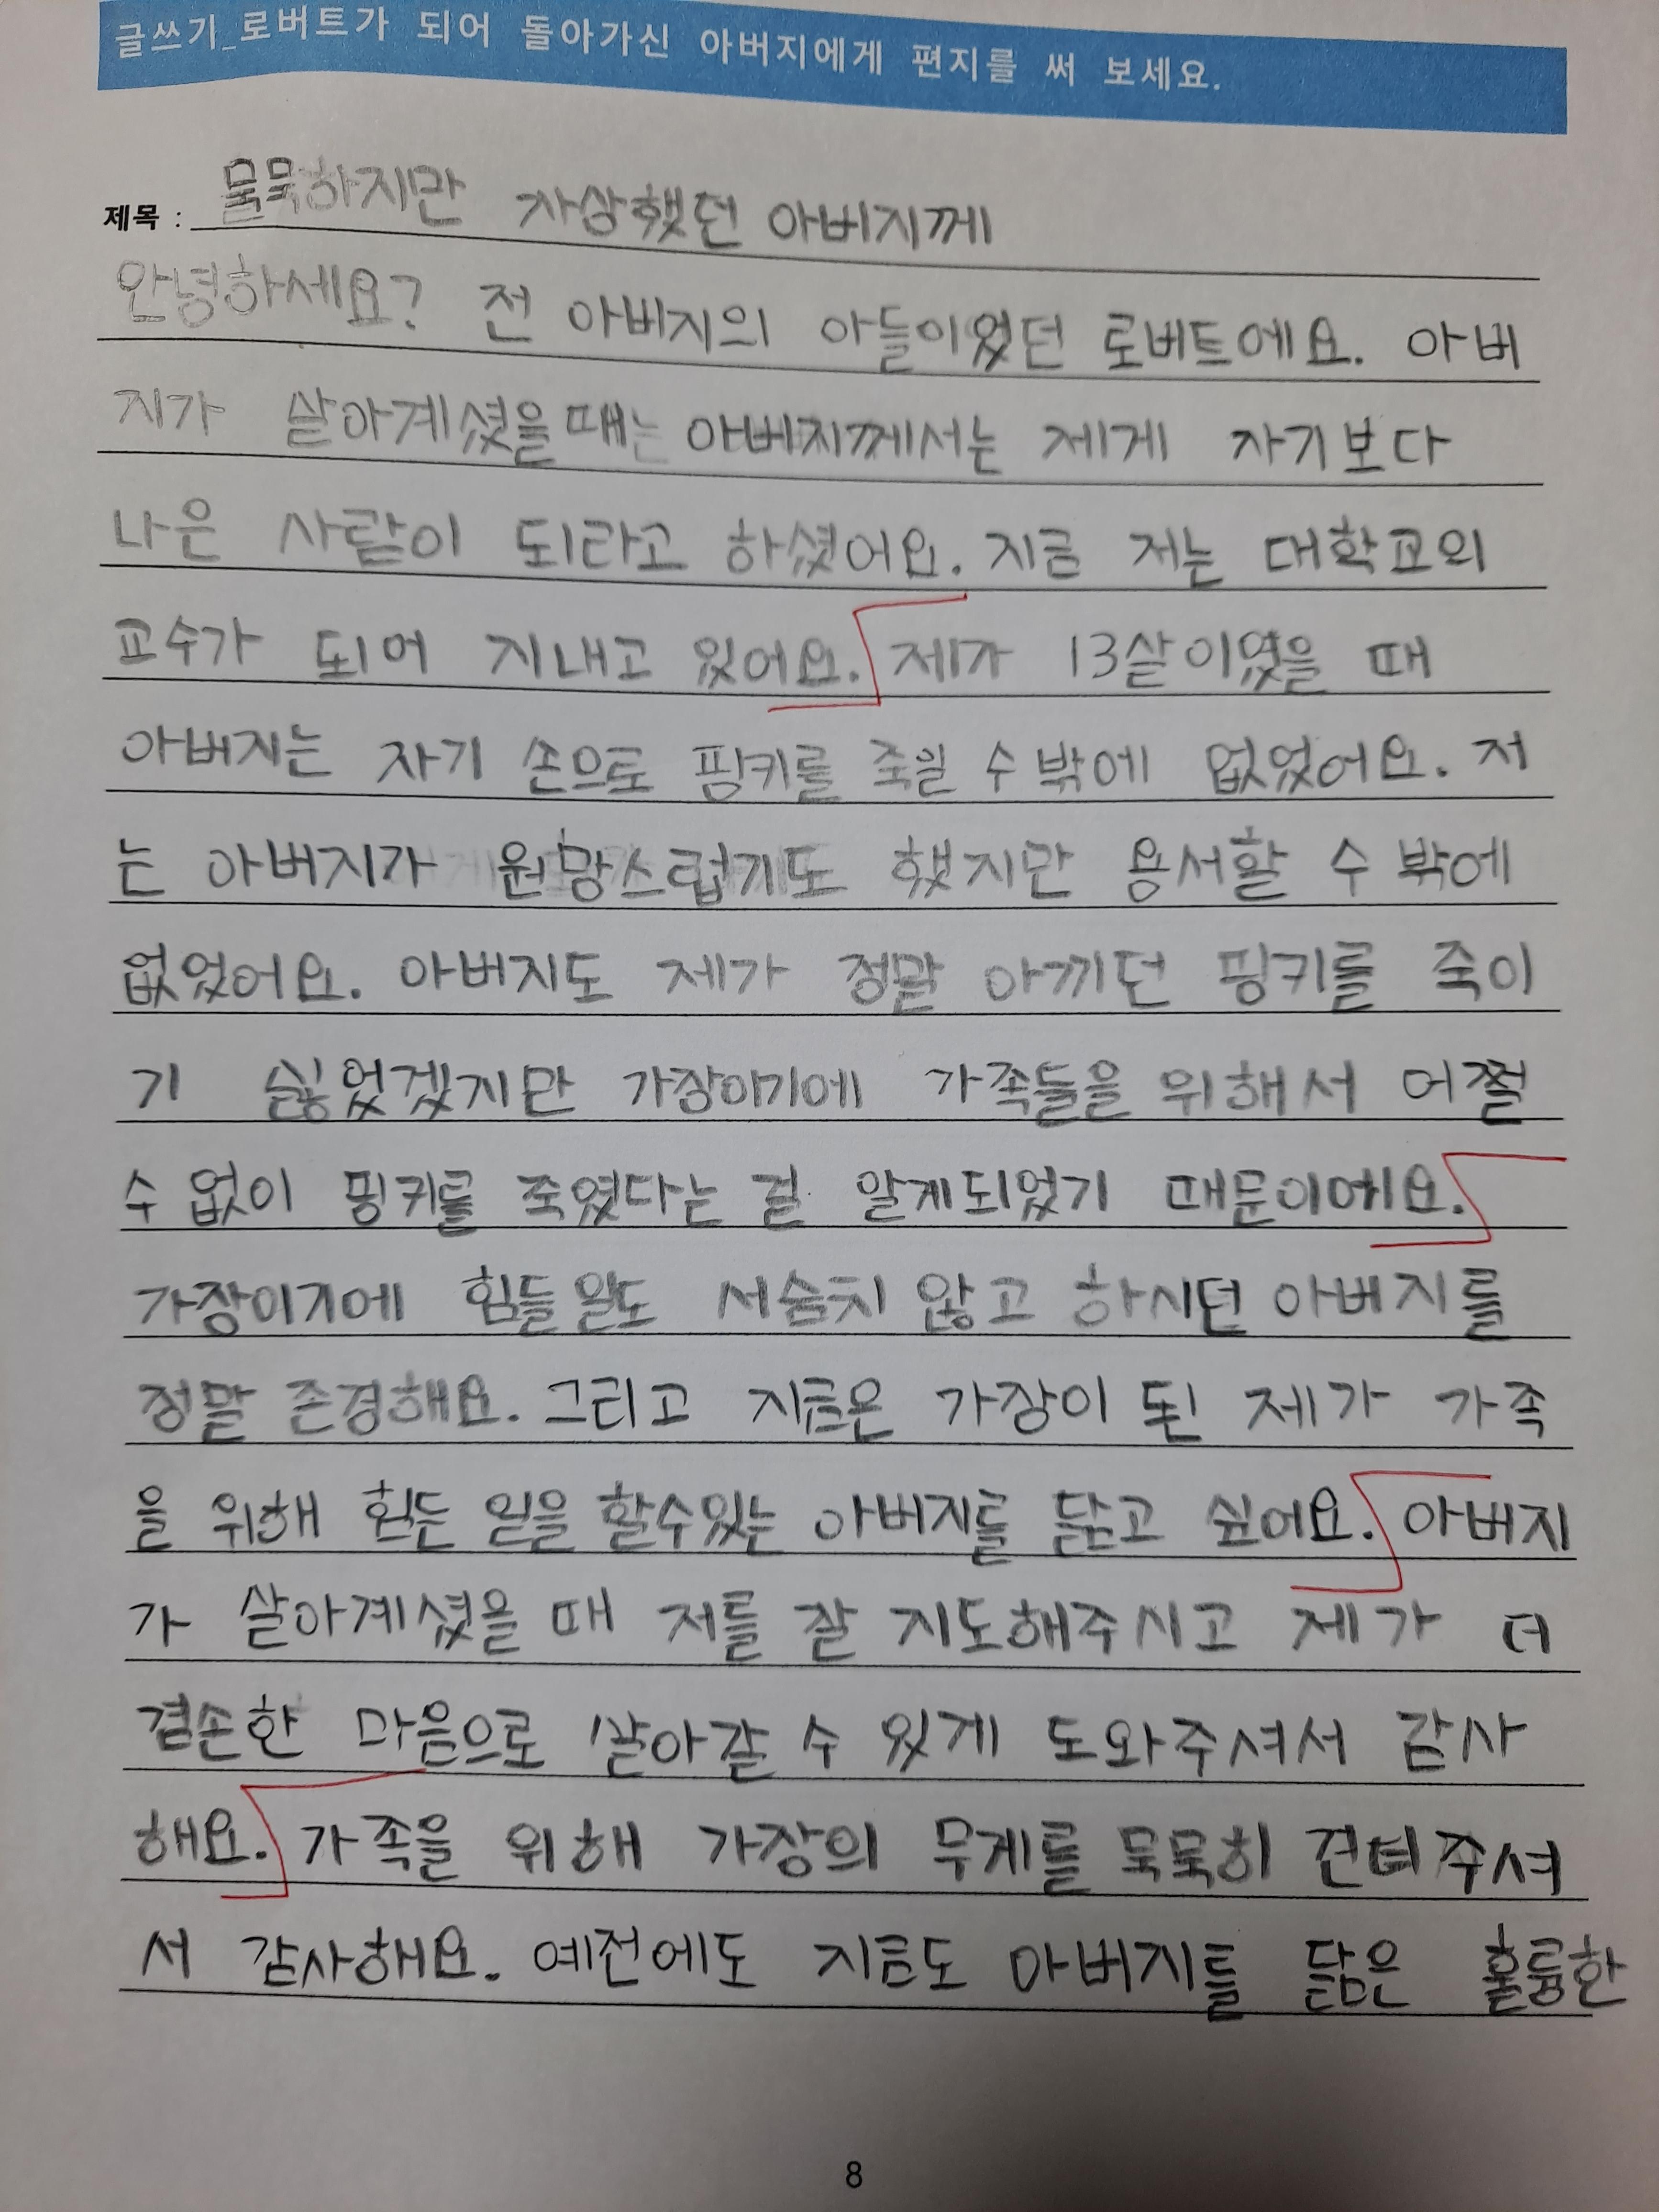 글쓰기_로버트가 되어 돌아가신 아버지에게 편지를 써 보세요.
제목 : 묵묵하지만 자상했던 아버지께
안녕하세요? 전 아버지의 아들이었던 로버트에요. 아버
지가 살아계셨을때는 아버지께서는 제게 자기보다
나은 사람이 되라고 하셨어요. 지금 저는 대학교의
교수가 되어 지내고 있어요. 제가 13살이였을 때
아버지는 자기 손으로 핑키를 죽일 수 밖에 없었어요. 저
는 아버지가 원망스럽기도 했지만 용서할 수 밖에
없었어요. 아버지도 제가 정말 아끼던 핑키를 죽이
기 싫었겠지만 가장이기에 가족들을 위해서 어쩔
수 없이 핑키를 죽였다는 걸 알게되었기 때문이에요.
가장이기에 힘들 일도 서슴치 않고 하시던 아버지를
정말 존경해요. 그리고 지금은 가장이 된 제가 가족
을 위해 힘든 일을 할수있는 아버지를 닮고 싶어요. 아버지
가 살아계셨을 때 저를 잘 지도해주시고 제가 더
겸손한 마음으로 살아갈 수 있게 도와주셔서 감사
해요. 가족을 위해 가장의 무게를 묵묵히 견뎌주셔
서 감사해요. 예전에도 지금도 아버지를 닮은 훌륭한
8